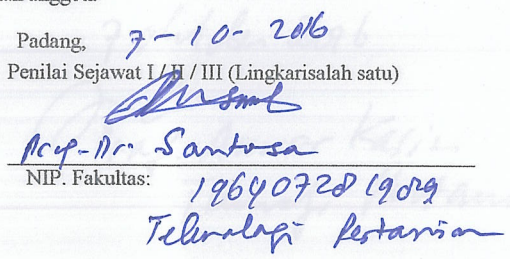 Padang, 7-10-2016
Penilai Sejawat I / II / III (Lingkarisalah satu)
Prof. Dr. Santosa
NIP. Fakultas: 196407281989
Teknologi Pertanian